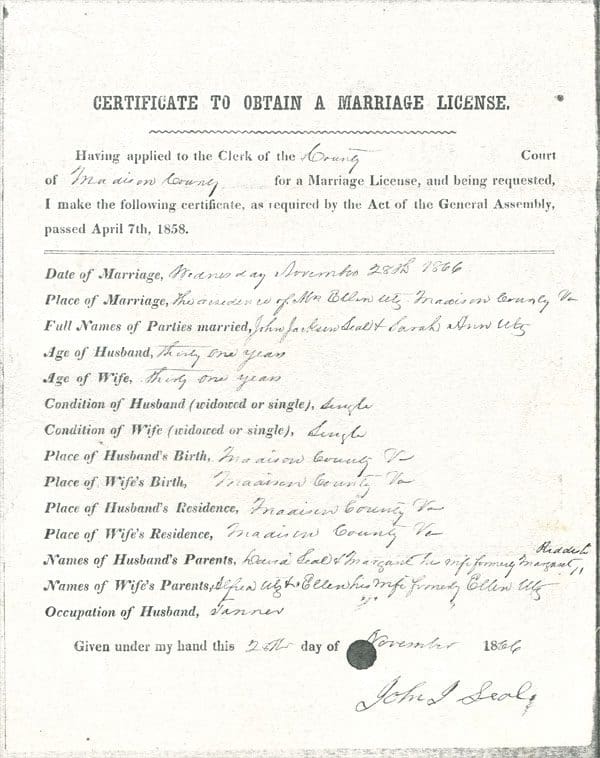 CERTIFICATE TO OBTAIN A MARRIAGE LICENSE.
Having applied to the Clerk of the County Court
of Madison County for a Marriage License, and being requested,
I make the following certificate, as required by the Act of the General Assembly,
passed April 7th, 1858.
Date of Marriage, Wednesday November 28th 1866
Place of Marriage, the residence of Mrs Ellen Utz Madison County Va
Full Names of Parties married, John Jackson Seal & Sarah Ann Utz
Age of Husband, thirty one years
Age of Wife, thirty one years
Condition of Husband (widowed or single), Single
Condition of Wife (widowed or single), Single
Place of Husband's Birth, Madison County Va
Place of Wife's Birth, Madison County Va
Place of Husband's Residence, Madison County Va
Place of Wife's Residence, Madison County Va
Names of Husband's Parents, David Seal & Margaret his wife formerly Margaret
Names of Wife's Parents, Utz & Ellen his wife formerly Ellen Utz
Occupation of Husband, Tanner
Given under my hand this 28th day of November 1866
John J Seal